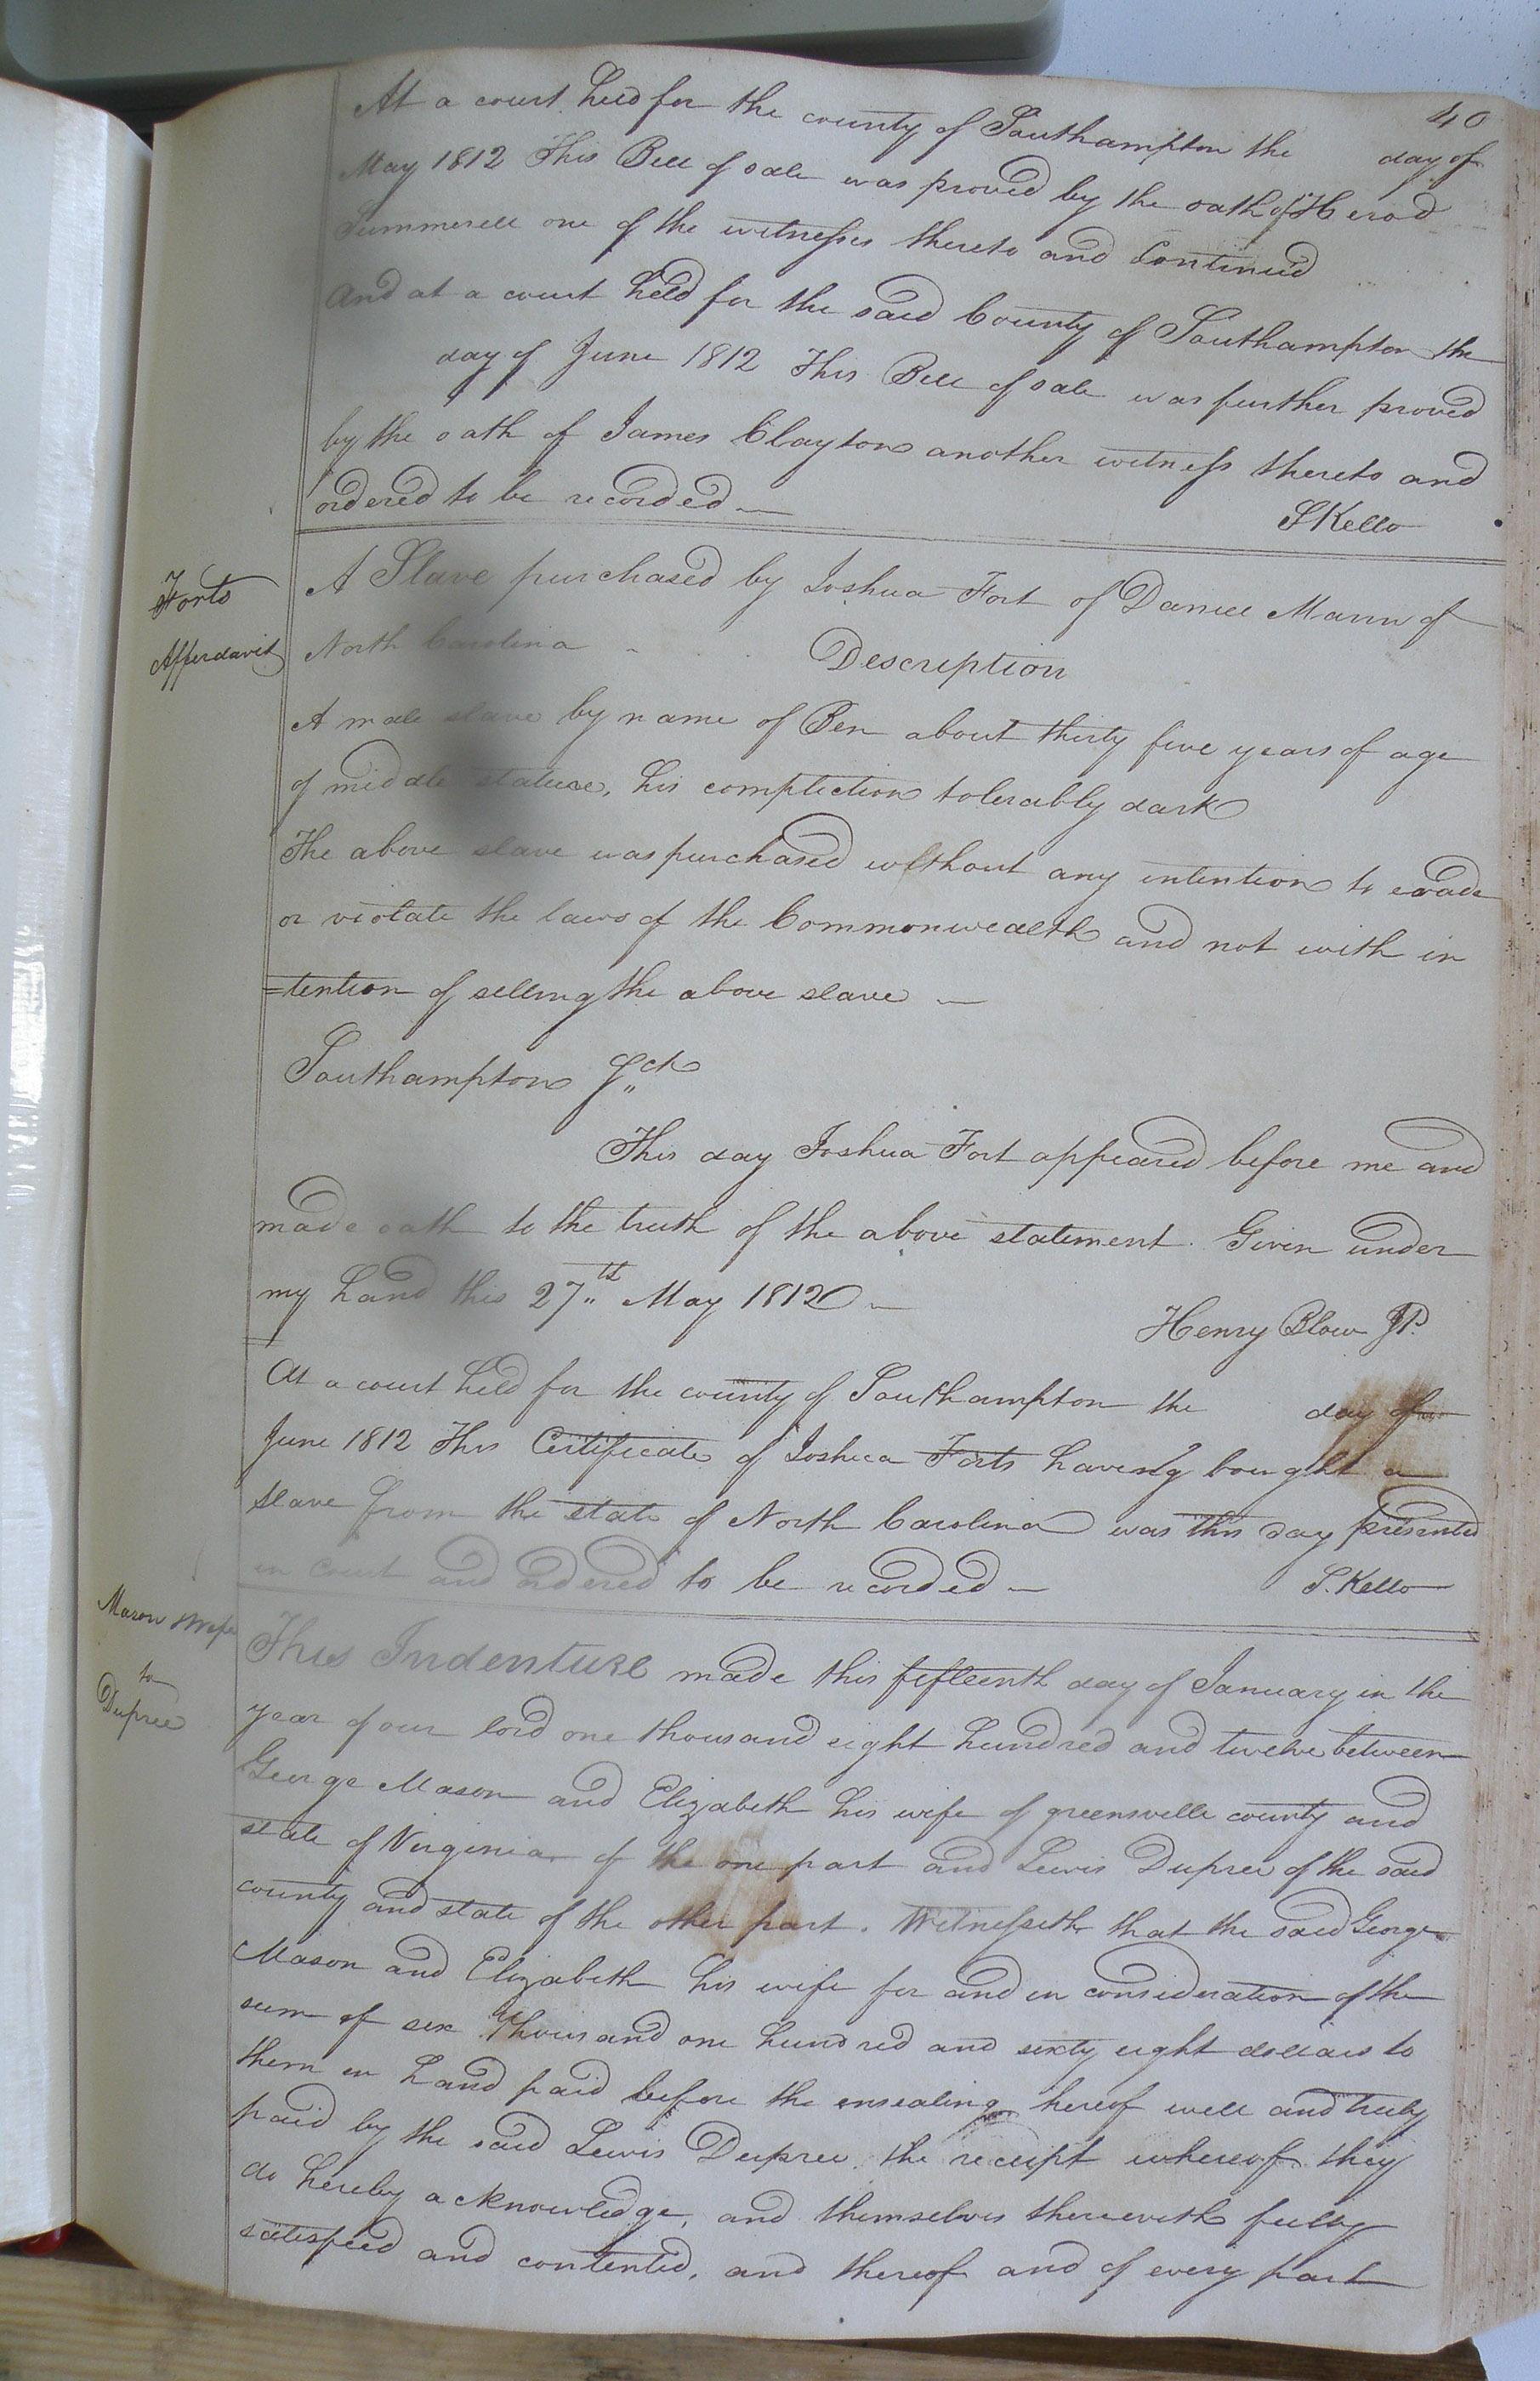 40
At a court held for the county of Southampton the day of
May 1812 This Bill of sale was proved by the oath of Herod
Summerell one of the witnesses thereto and Continued
And at a court held for the said County of Southampton the
day of June 1812 This Bill of sale was further proved
by the oath of James Clayton another witness thereto and
ordered to be recorded
S Kello
Forts
Afferdavit
A Slave purchased by Joshua Fort of Daniel Mann of
North Carolina
Description
A male slave by name of Ben about thirty five years of age
of middle stature, his complection tolerably dark
The above slave was purchased without any intention to evade
or violate the laws of the Commonwealth and not with in
=tention of selling the above slave
Southampton Sct
This day Joshua Fort appeared before me and
made oath to the truth of the above statement. Given under
my hand this 27th May 1812
Henry Blow JP.
At a court held for the county of Southampton the day of
June 1812 This Certificate of Joshua Forts having bought a
slave from the state of North Carolina was this day presented
in court and ordered to be recorded
S. Kello
Mason
to
Dupree
This Indenture made this fifteenth day of January in the
year of our lord one thousand eight hundred and twelve between
George Mason and Elizabeth his wife of greensville county and
state of Virginia of the one part and Lewis Dupree of the said
county and state of the other part. Witnesseth that the said George
Mason and Elizabeth his wife for and in consideration of the
sum of six thousand one hundred and sixty eight dollars to
them in hand paid before the ensealing hereof well and truly
paid by the said Lewis Dupree. the receipt whereof they
do hereby acknowledge, and themselves therewith fully
satisfied and contented, and thereof and of every part